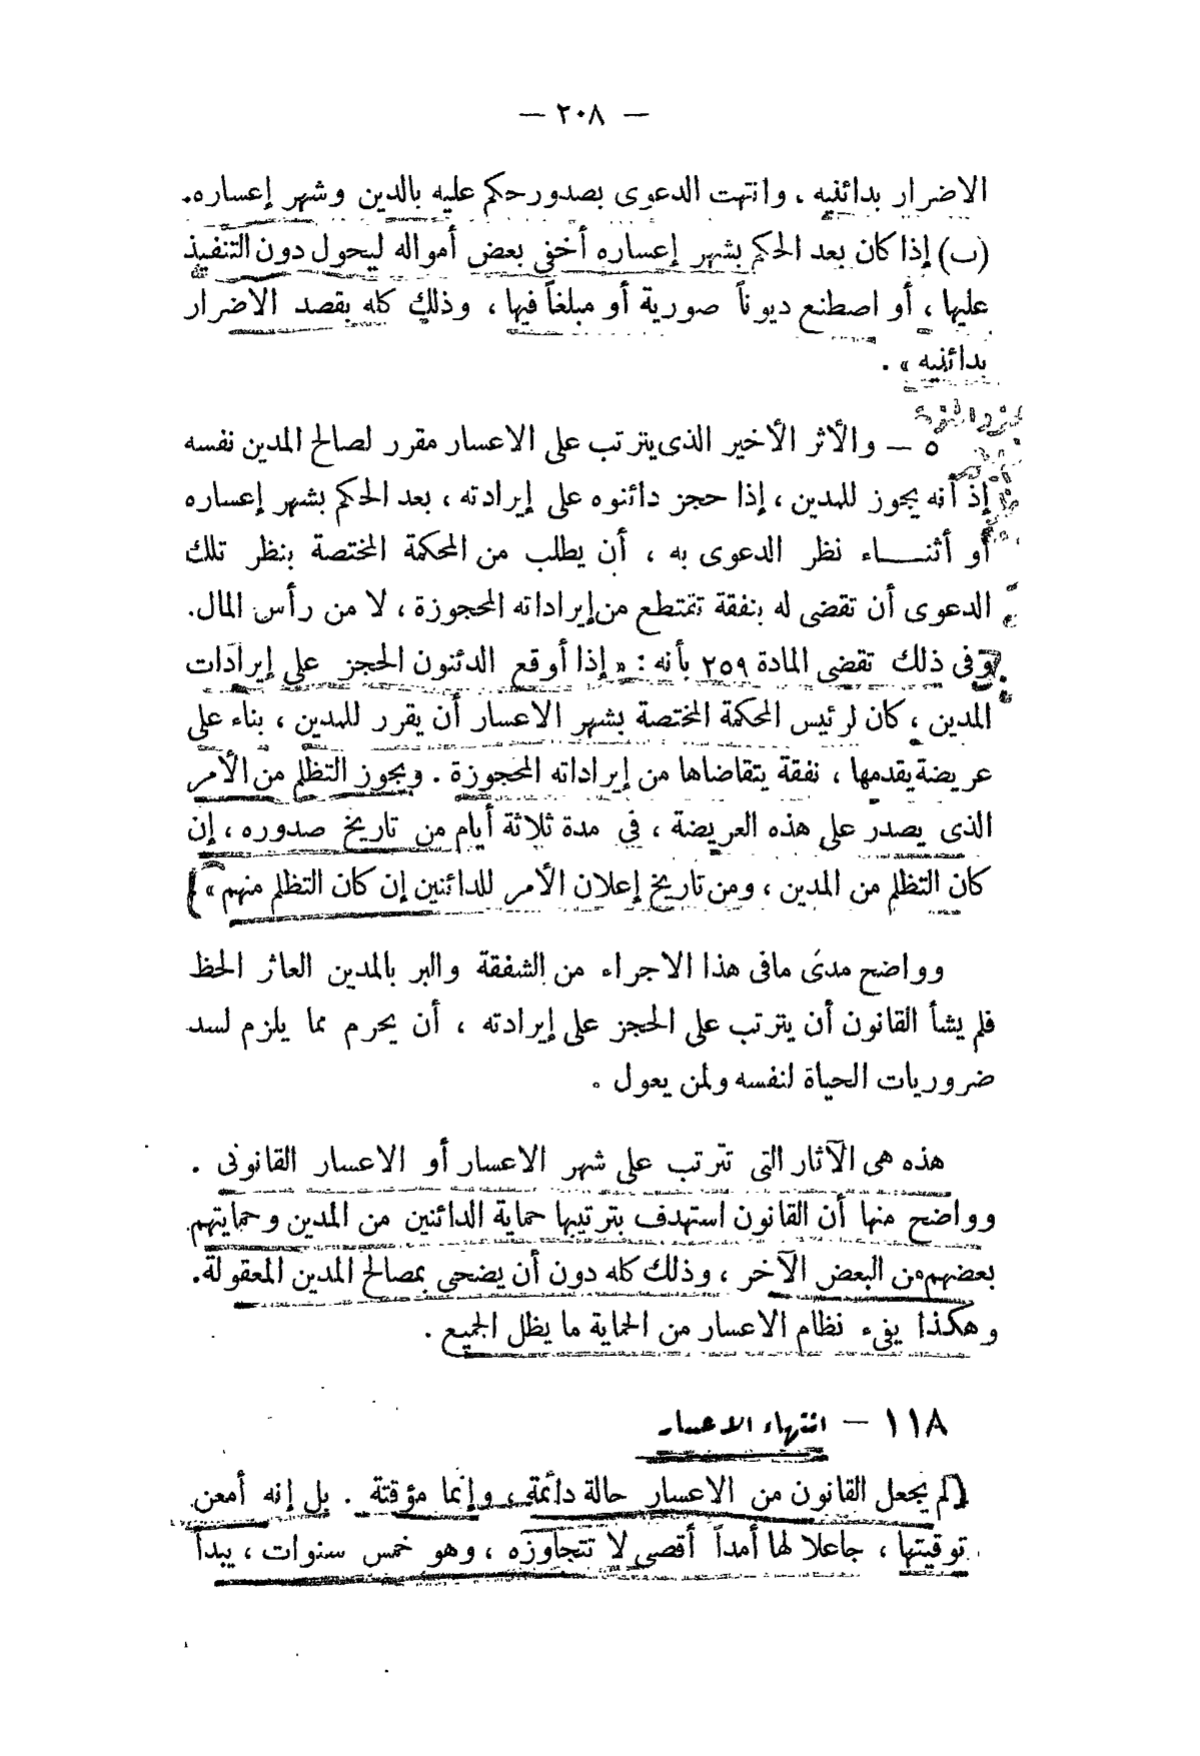 — ٢٠٨ —
الاضرار بدائنيه ، وانتهت الدعوى بصدور حكم عليه بالدين وشهر إعساره.
(ب) إذا كان بعد الحكم بشهر إعساره أخفى بعض أمواله ليحول دون التنفيذ
عليها ، أو اصطنع ديوناً صورية أو مبلغاً فيها ، وذلك كله بقصد الاضرار
بدائنيه » .
٥ — والأثر الأخير الذى يترتب على الاعسار مقرر لصالح المدين نفسه
إذ أنه يجوز للمدين ، إذا حجز دائنوه على إيرادته ، بعد الحكم بشهر إعساره
أو أثنـــاء نظر الدعوى به ، أن يطلب من المحكمة المختصة بنظر تلك
الدعوى أن تقضى له بنفقة تقتطع من إيراداته المحجوزة ، لا من رأس المال.
وفى ذلك تقضى المادة ٢٥٩ بأنه : « إذا أوقع الدئنون الحجز على إيرادات
المدين ، كان لرئيس المحكمة المختصة بشهر الاعسار أن يقرر للمدين ، بناء على
عريضة يقدمها ، نفقة يتقاضاها من إيراداته المحجوزة . ويجوز التظلم من الأمر
الذى يصدر على هذه العريضة ، فى مدة ثلاثة أيام من تاريخ صدوره ، إن
كان التظلم من المدين ، ومن تاريخ إعلان الأمر للدائنين إن كان التظلم منهم »
وواضح مدى مافى هذا الاجراء من الشفقة والبر بالمدين العاثر الحظ
فلم يشأ القانون أن يترتب على الحجز على إيرادته ، أن يحرم مما يلزم لسد
ضروريات الحياة لنفسه ولمن يعول .
هذه هى الآثار التى تترتب على شهر الاعسار أو الاعسار القانونى .
وواضح منها أن القانون استهدف بترتيبها حماية الدائنين من المدين وحمايتهم
بعضهم من البعض الآخر ، وذلك كله دون أن يضحى بمصالح المدين المعقولة.
وهكذا يفىء نظام الاعسار من الحماية ما يظل الجميع .
١١٨ — انتهاء الاعسار
لم يجعل القانون من الاعسار حالة دائمة ، وإنما مؤقتة . بل إنه أمعن
توقيتها ، جاعلا لها أمداً أقصى لا تتجاوزه ، وهو خمس سنوات ، يبدأ